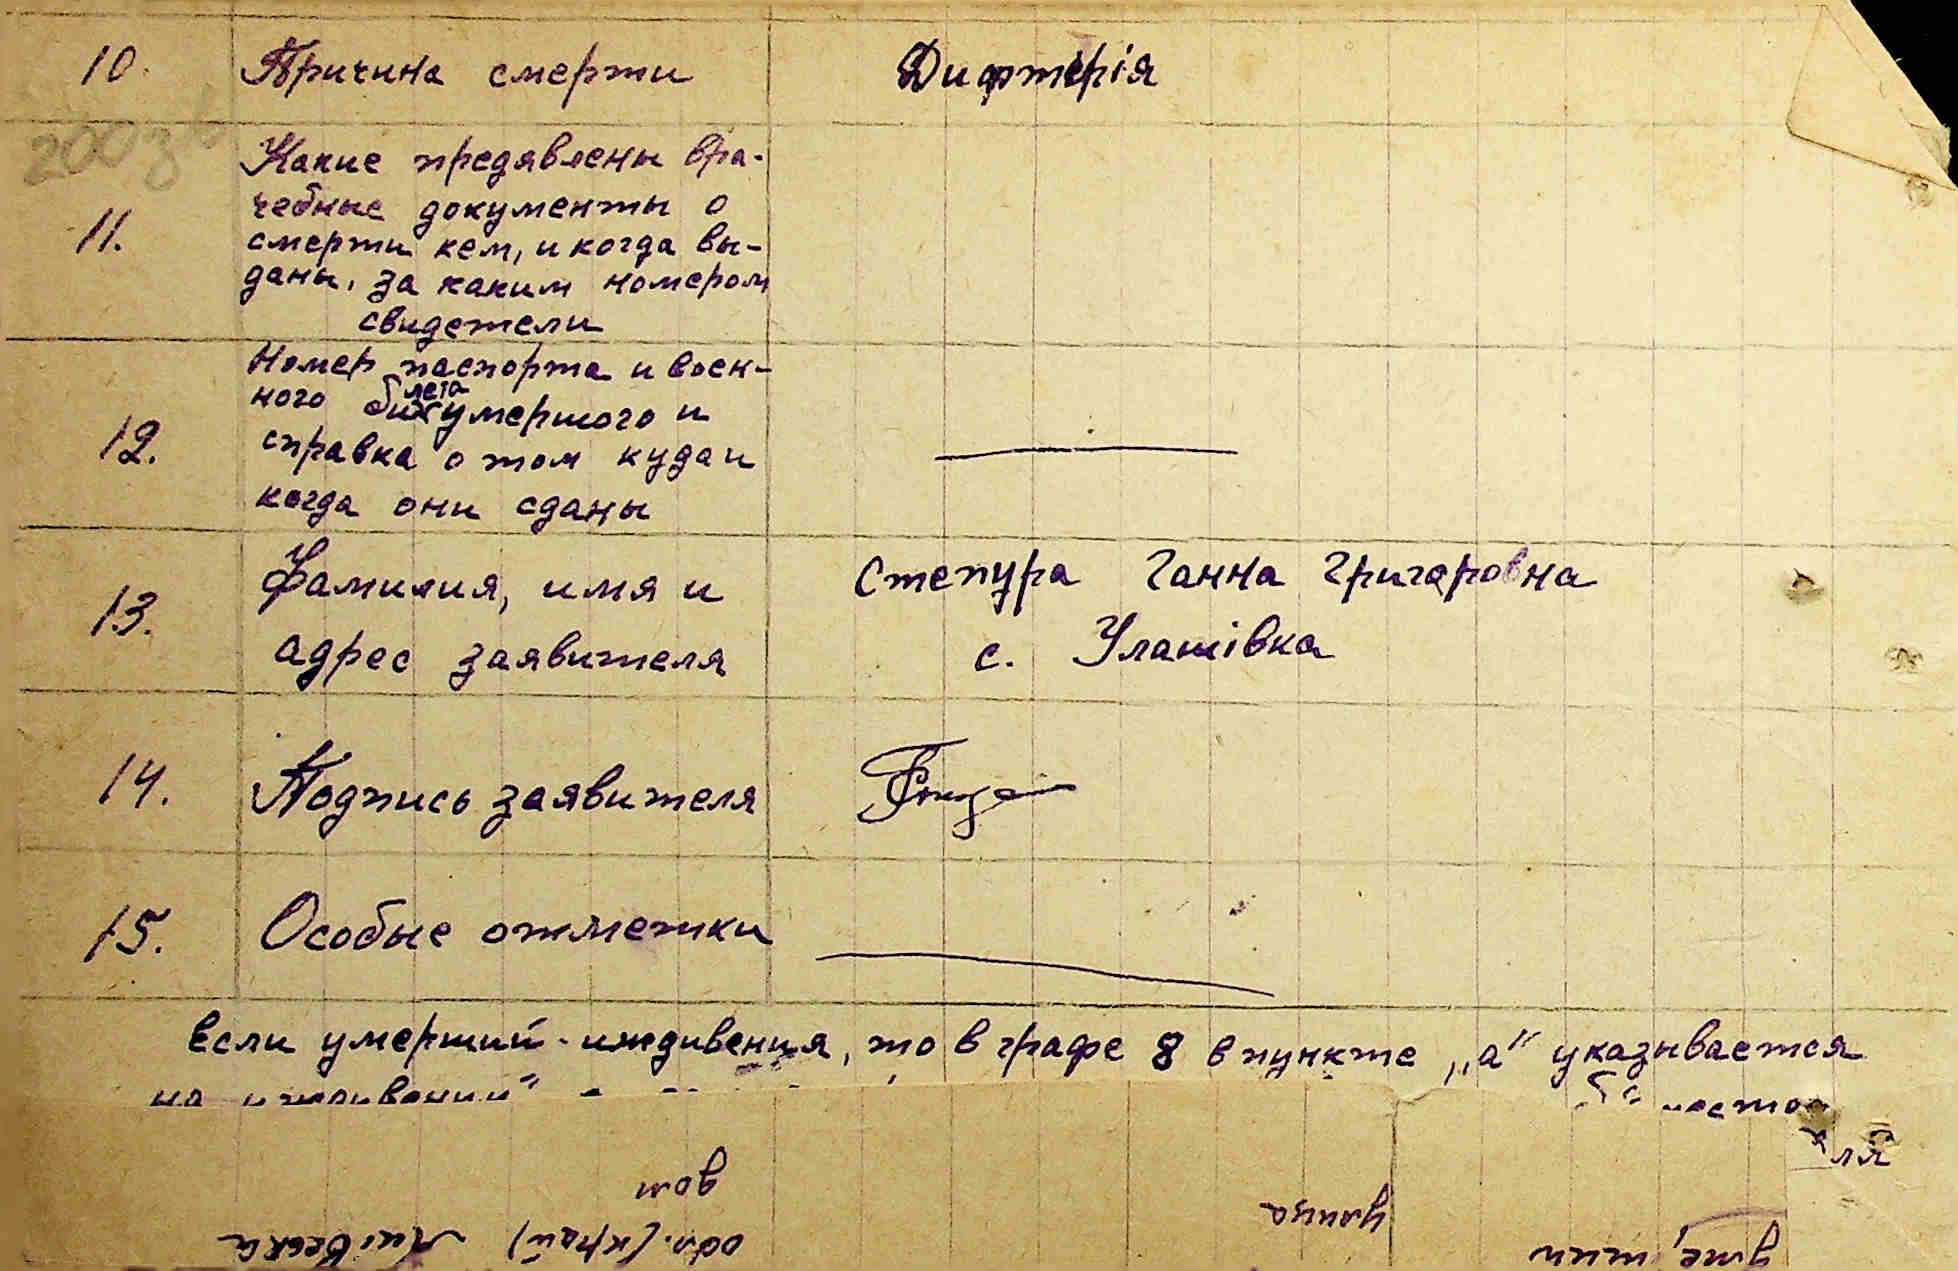 10. Причина смерти Дифтерія
Какие предявлены вра-
чебные документы о
11. смерти кем, и когда вы-
даны, за каким номером
свидетели
Номер паспорта и воен-
ного билета умершого и
12. справка о том куда и
когда они сданы
13. Фамилия, имя и Степура Ганна Григоровна
адрес заявителя с. Улашівка
14. Подпись заявителя
15. Особые отметки
Если умерший - иждивенця, то в графе 8 в пункте „а" указывается
на иждивении"
дом
улица
обл. (край) Київська